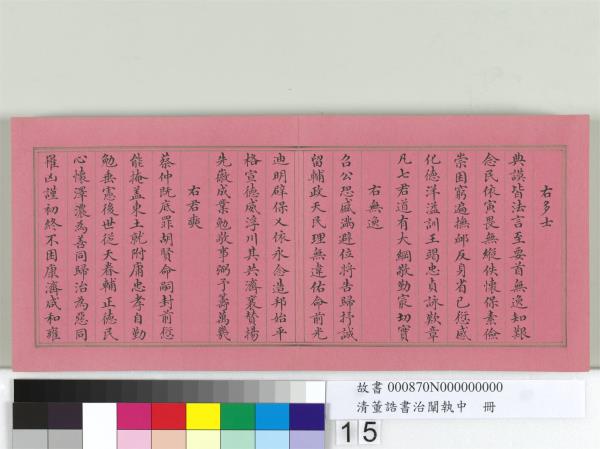 右多士
典謨皆法言至要首無逸知艱
念民依寅畏無縱佚懷保素儉
崇困窮遍撫卹反身省已愆感
化德洋溢訓王竭忠貞詠歎章
凡七君道有大綱敬勤家切實
右無逸
召公恐盛滿避位將告歸抒誠
留輔政天民理無違佑命前光
迪明辟保人依永念造邦始平
格宣德威浮川其共濟襄贊揚
先徽成業勉敬事弼予籌萬幾
右君奭
蔡仲阮底罪胡賢命嗣封前愆
能掩蓋東土就附庸忠孝自勤
勉垂憲後世從天眷輔正德民
心懷澤濃為善同歸治為惡同
罹凶謹初終不困康濟咸和雍
故書 000870N000000000
清董誥書治闡執中 冊
15